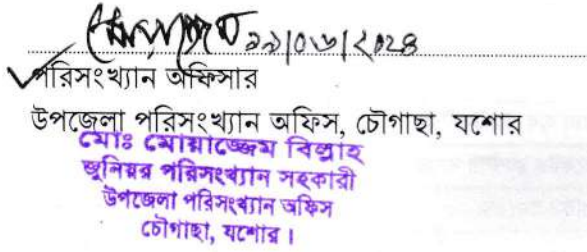 ১৯/০৬/২০২৪
পরিসংখ্যান অফিসার
উপজেলা পরিসংখ্যান অফিস, চৌগাছা, যশোর
মোঃ মোয়াজ্জেম বিল্লাহ
জুনিয়র পরিসংখ্যান সহকারী
উপজেলা পরিসংখ্যান অফিস
চৌগাছা, যশোর।